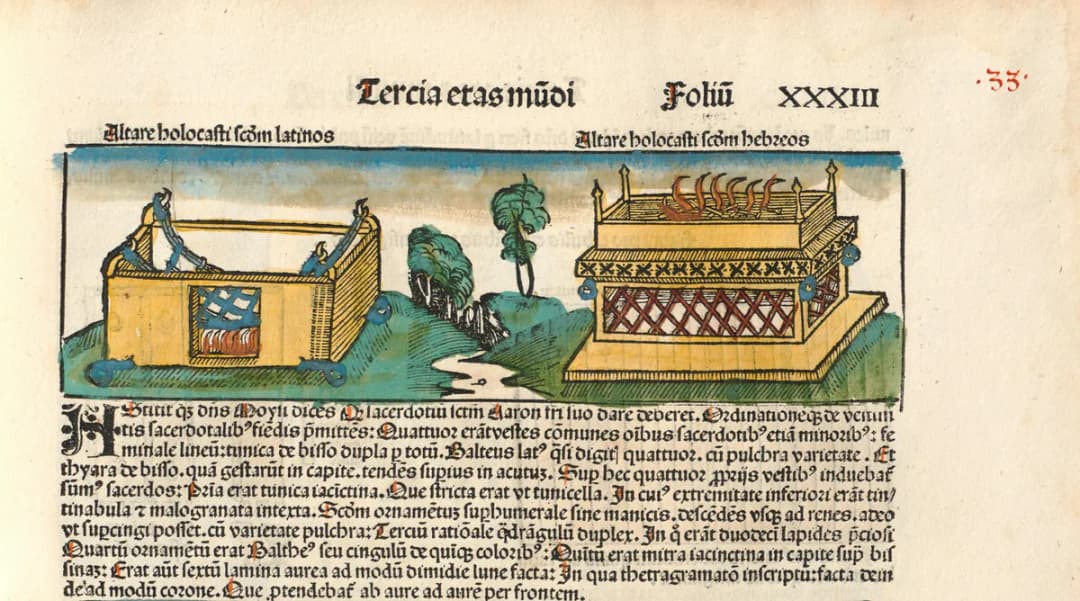 Tercia etas mūdi Foliū XXXIII
·33·
Altare holocasti scōm latinos Altare holocasti scōm hebreos
Stitit qꝫ dn̄s Moysi dīces Qꝫ sacerdotiū scm̄ Aaron fr̄i suo dare deberet. Ordinationeqꝫ de vestimn
tis sacerdotalibꝰ fiēdis p̄mittēs: Quattuor erātvestes cōmunes oībus sacerdotibꝰ etiā minoribꝰ: fe
miniale lineū: tunica de bisso dupla ꝑ totū. Balteus latꝰ q̄si digit quattuor. cū pulchra varietate. Et
thyara de bisso. quā gestarūt in capite. tendēs suꝑius in acutuꝫ. Suꝑ hec quattuor ꝓprijs vestibꝰ induebat̄
sūmꝰ sacerdos: Pr̄ia erat tunica iacīctina. Que stricta erat vt tunicella. In cuiꝰ extremitate inferiori erāt tin/
tinabula ⁊ malogranata intexta. Scōm ornamētuꝫ suꝑhumerale sine manicis. descēdēs vsqꝫ ad renes. adeo
vt suꝑcingi posset. cū varietate pulchra: Terciū ratiōale q̄drāgulū duplex. In q̄ erāt duodecī lapides p̄ciosi
Quartū ornamētū erat Baltheꝰ seu cingulū de quīqꝫ coloribꝰ: Quītū erat mitra iacinctina in capite suꝑ bis
sinaꝫ: Erat aūt sextū lamina aurea ad modū dimidie lune facta: In qua thetragramatō inscriptū: facta dein
de ad modū corone. Que ꝓtendebat̄ ab aure ad aurē per frontem.